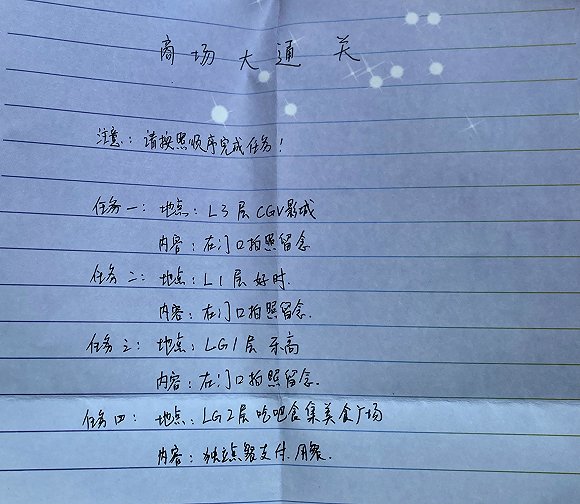 商场大通关
注意：请按照顺序完成任务！
任务一：地点：L3层 CGV影城
内容：在门口拍照留念
任务二：地点：L1层 好时.
内容：在门口拍照留念.
任务三：地点：LG1层 乐高
内容：在门口拍照留念.
任务四：地点：LG2层 吃吧合集美食广场
内容：独立点餐支付.用餐.